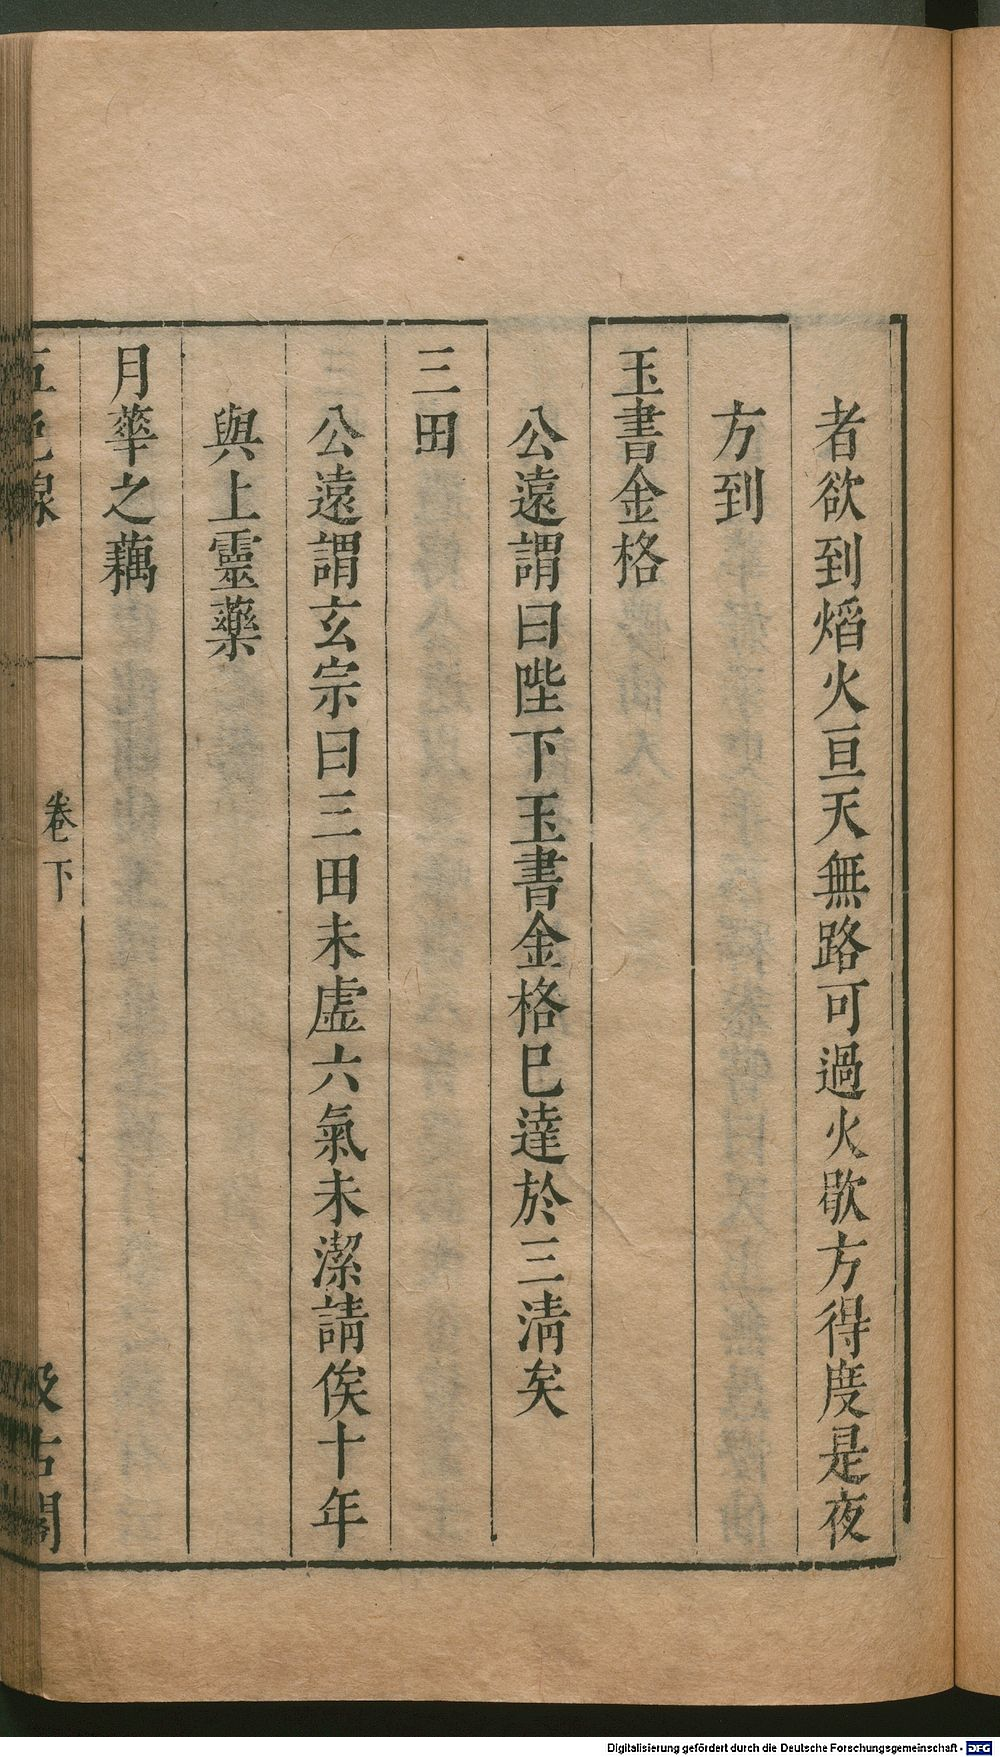 者欲到熖火亘天無路可過火歇方得度是夜
方到
玉書金格
公遠謂曰陛下玉書金格巳達於三淸矣
三田
公遠謂玄宗曰三田未虛六氣未潔請俟十年
與上靈藥
月華之藕
五色線
卷下
汲古閣
Digitalisierung gefördert durch die Deutsche Forschungsgemeinschaft - DFG